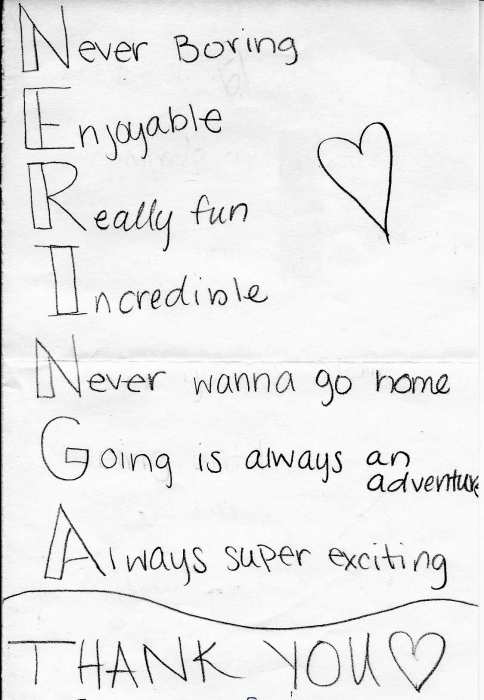 Never Boring
Enjoyable
Really fun
Incredible
Never wanna go home
Going is always an
adventure
Always super exciting
THANK YOU